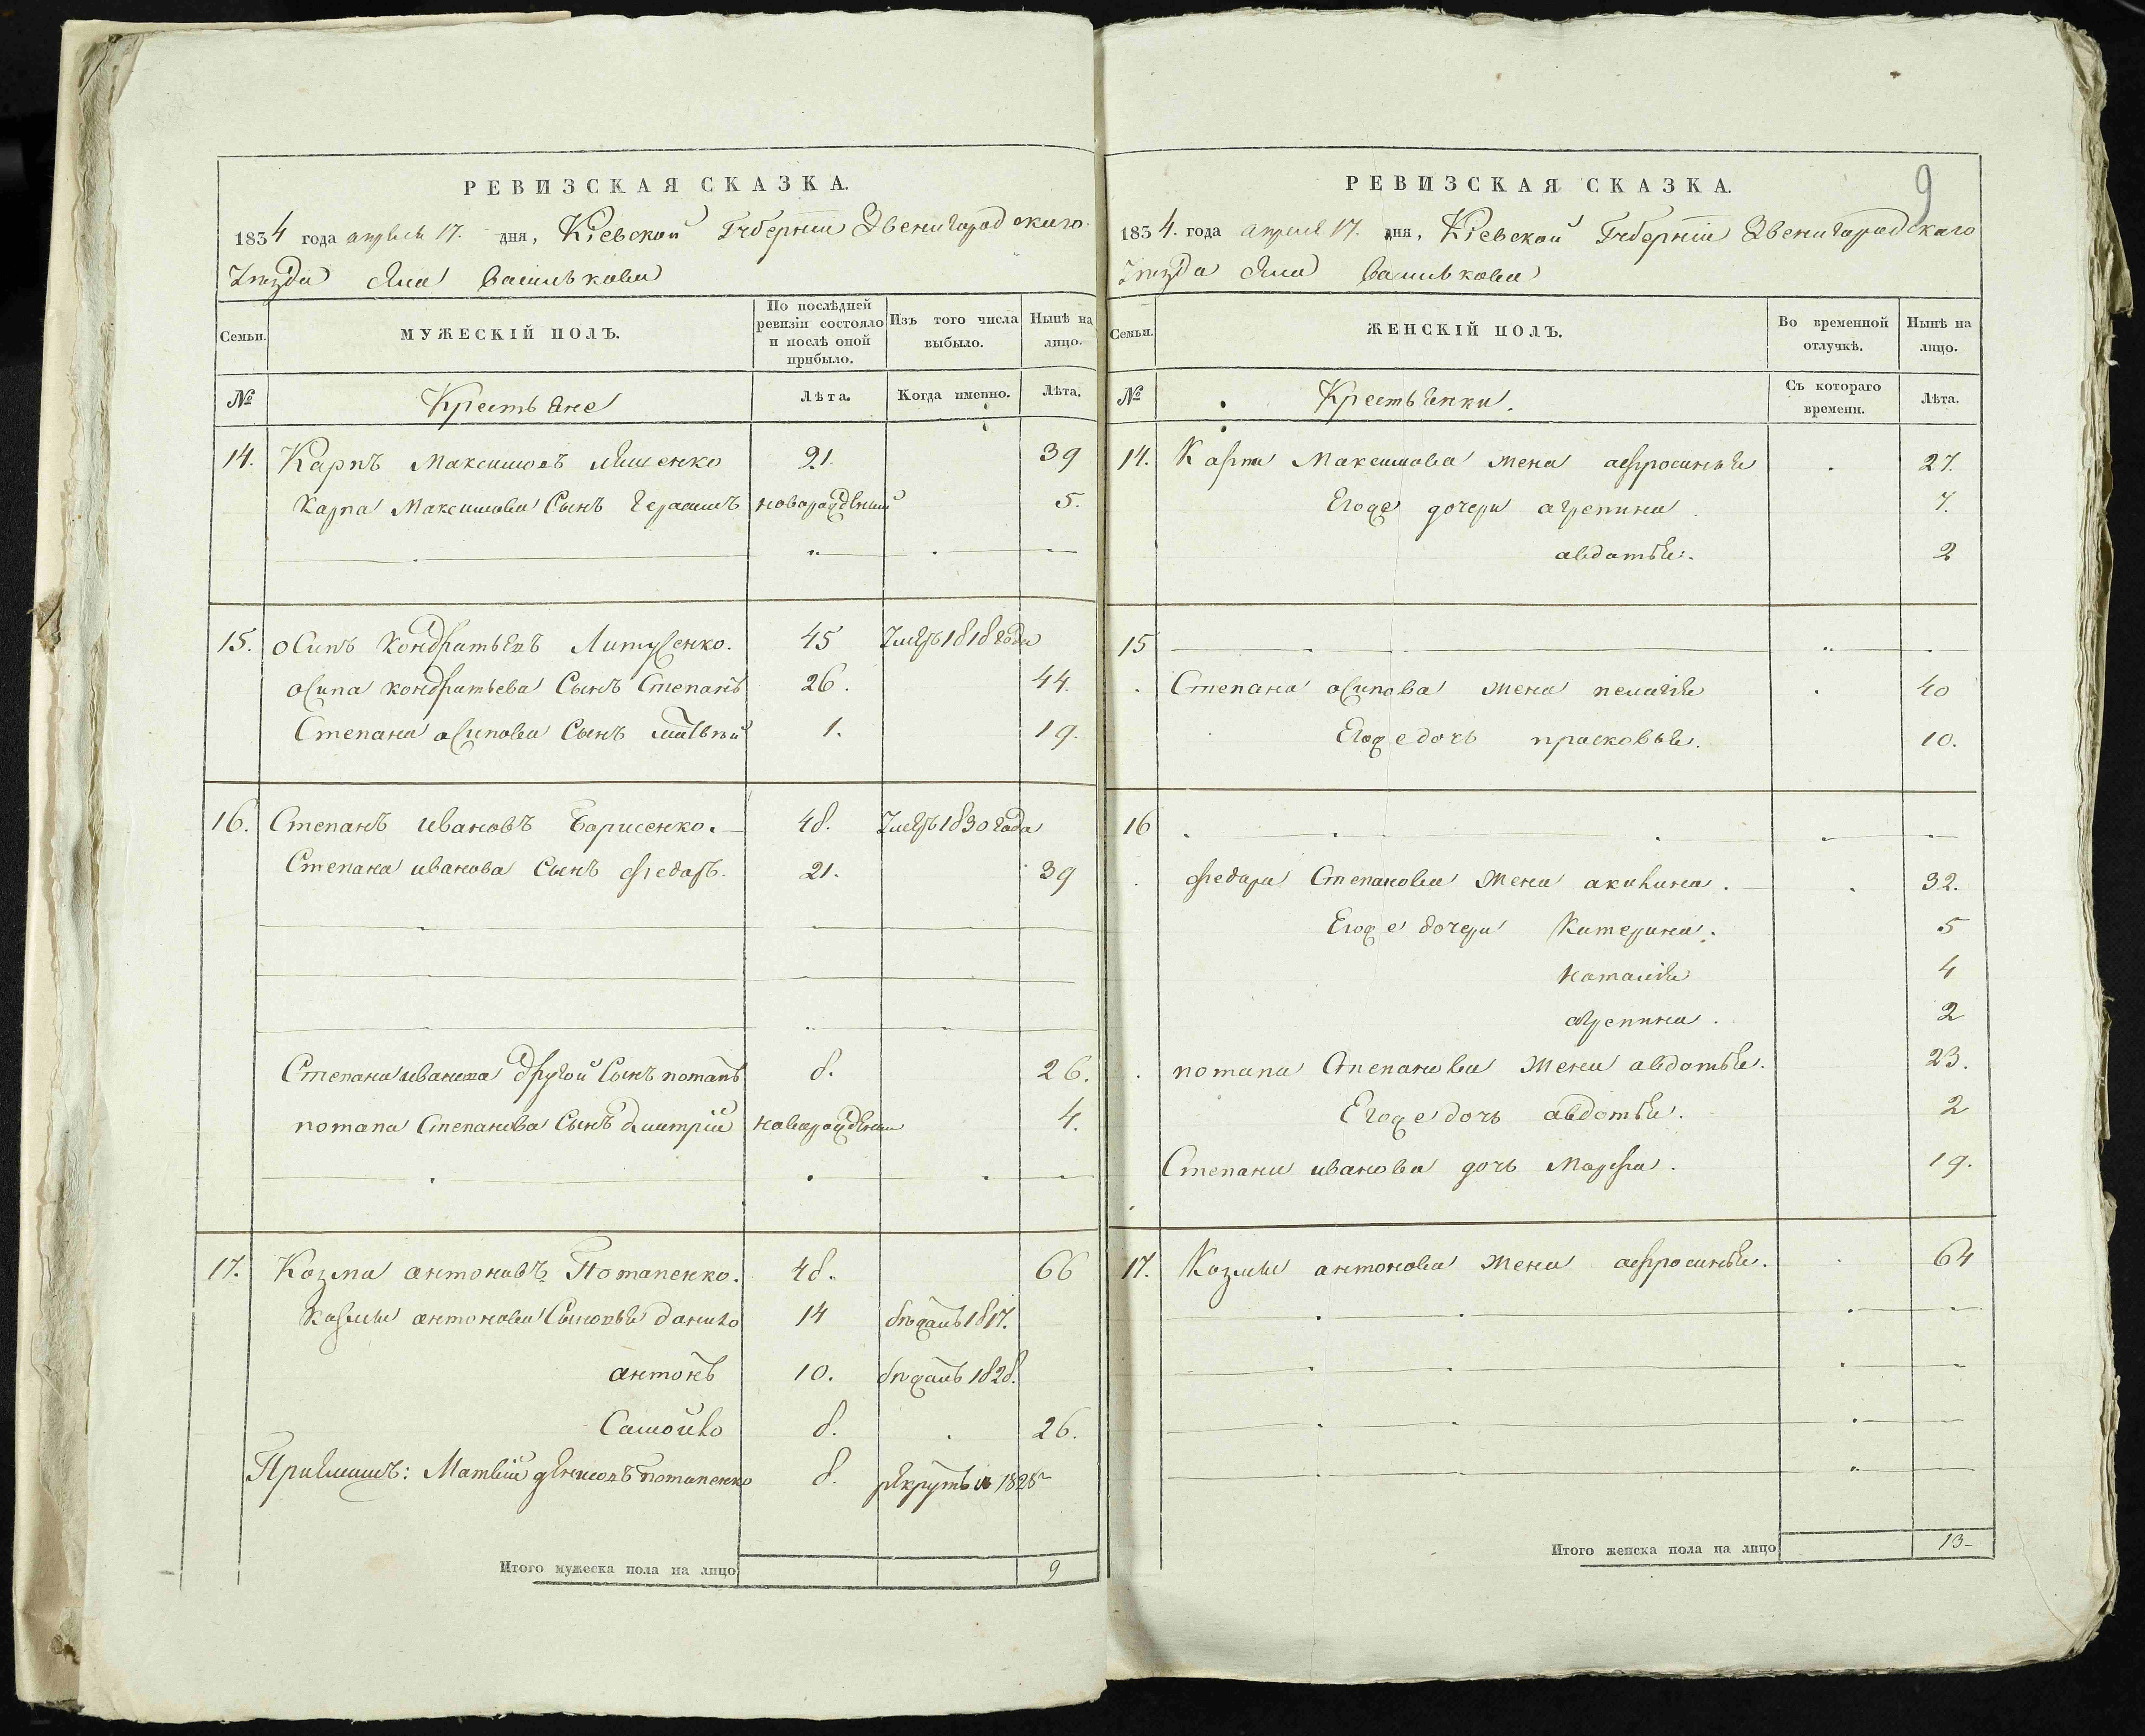 РЕВИЗСКАЯ СКАЗКА.
1834 года апреля 17. дня, Кіевской Губерніи Звенигородскаго
Уезда Села Василькова
Семьи. МУЖЕСКІЙ ПОЛЪ. По послѣдней ревизіи состояло и послѣ оной прибыло. Изъ того числа выбыло. Нынѣ на лицо.
№ Крестьяне Лѣта. Когда именно. Лѣта.
14. Карпъ Максимовъ 21. 39
Карпа Максимова Сынъ Герасимъ новорожденый 5.
15. осипъ Кондратьевъ Литусенко. 45 Умеръ 1818 года
осипа кондратьева Сынъ Степанъ 26. 44.
Степана осипова Сынъ матвѣй 1. 19.
16. Степанъ ивановъ Борисенко. 48. Умеръ 1830 года
Степана иванова Сынъ федоръ. 21. 39
Степана иванова другой Сынъ потапъ 8. 26.
потапа Степанова Сынъ дмитрій новорожденый 4.
17. Козма антоновъ Потапенко. 48. 66
Козмы антонова Сыновья данило 14 бѣжалъ 1817.
антонъ 10. бѣжалъ 1828.
Самойло 8. 26.
Приемышъ: Матвій потапенко 8. рекрутъ 1828
Итого мужеска пола на лицо 9
9
РЕВИЗСКАЯ СКАЗКА.
1834. года апреля 17. дня, Кіевской Губерніи Звенигородскаго
Уезда Села Василькова
Семьи. ЖЕНСКІЙ ПОЛЪ. Во временной отлучкѣ. Нынѣ на лицо.
№ Крестьянки. Съ котораго времени. Лѣта.
14. Карпа Максимова жена афросинья 27.
Егоже дочери агрепина 7.
авдотья. 2
15
Степана осипова жена пелагія 40
Егоже дочь прасковья. 10.
16
федора Степанова жена акилина. 32.
Егоже дочери Катерина. 5
наталія 4
агрепина. 2
потапа Степанова жена авдотья. 23.
Егоже дочь авдотья. 2
Степана иванова дочь Марфа. 19.
17. Козмы антонова жена афросинья. 64
Итого женска пола на лицо 13